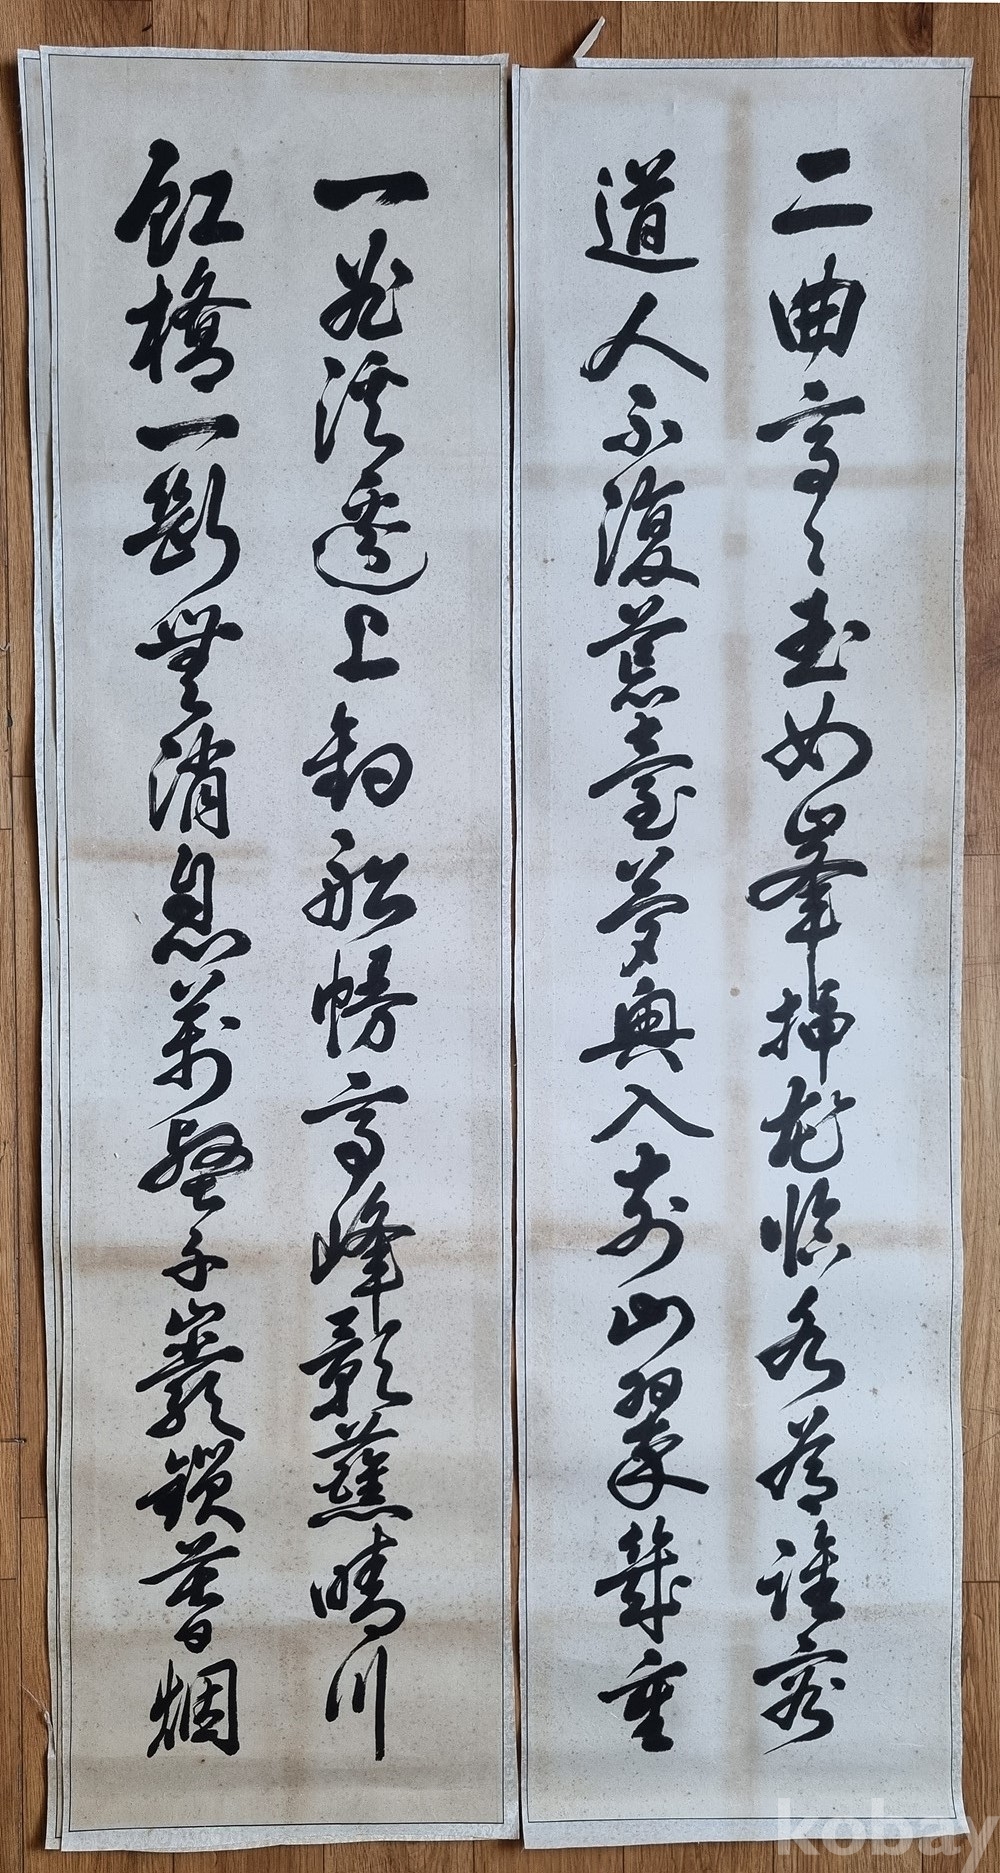 二曲亭々玉女峯插花臨水為誰容
道人不復荒臺夢興入前山翠幾重
一曲溪邊上釣船幔亭峰影蘸晴川
虹橋一斷無消息萬壑千巖鎖暮烟
kobay